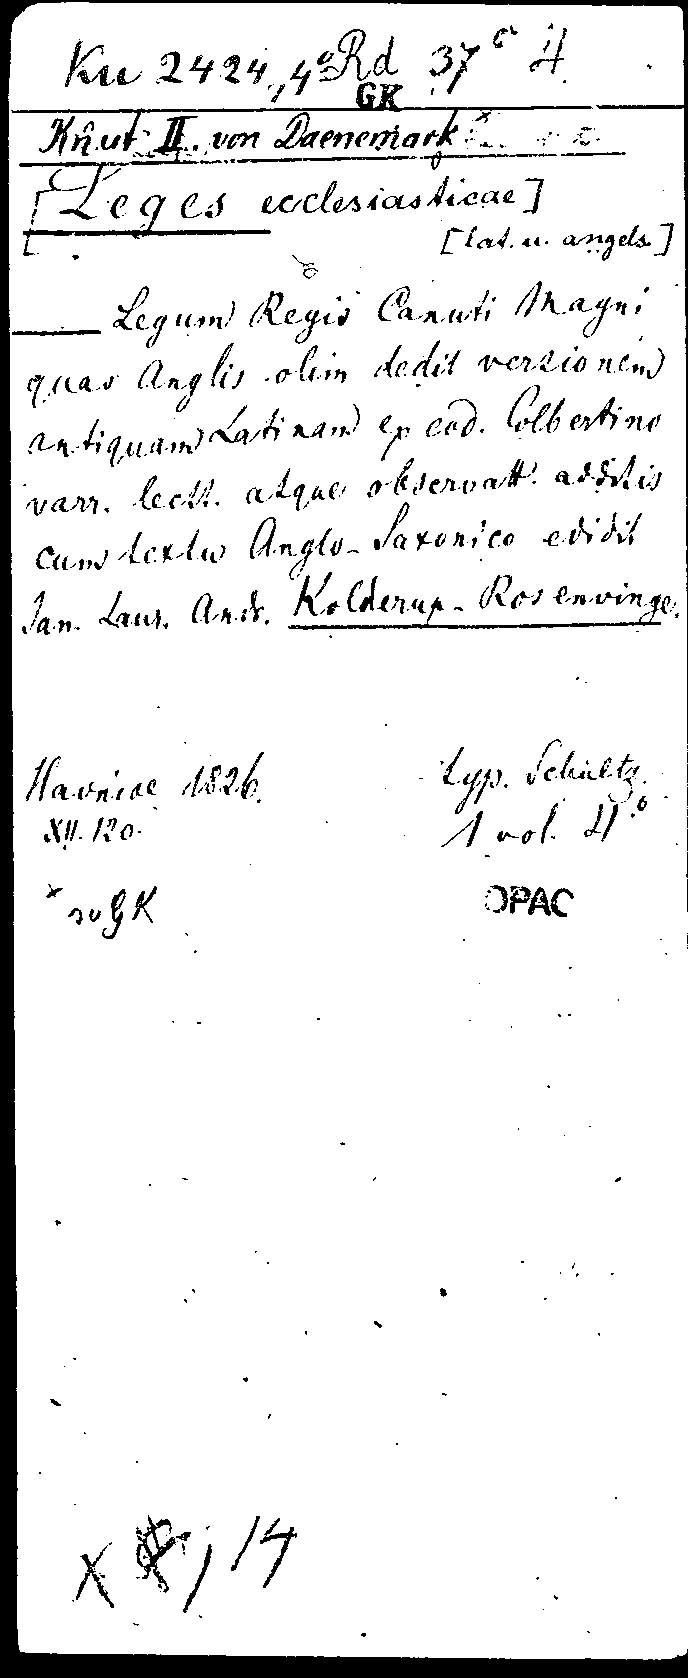 Ku 2424, 4° Rd 37 a 4
GK
Knut II. von Daenemark x
[Leges ecclesiasticae]
[lat. u. angels.]
— Legum Regis Canuti Magni
quas Anglis olim dedit versionem
antiquam Latinam ex cod. Colbertino
varr. lectt. atque observatt. additis
cum textu Anglo-Saxonico edidit
Jan. Laur. Andr. Kolderup-Rosenvinge.
Havniae 1826. typ. Schultz.
XII. 120. 1 vol. 4°
x so GK OPAC
14